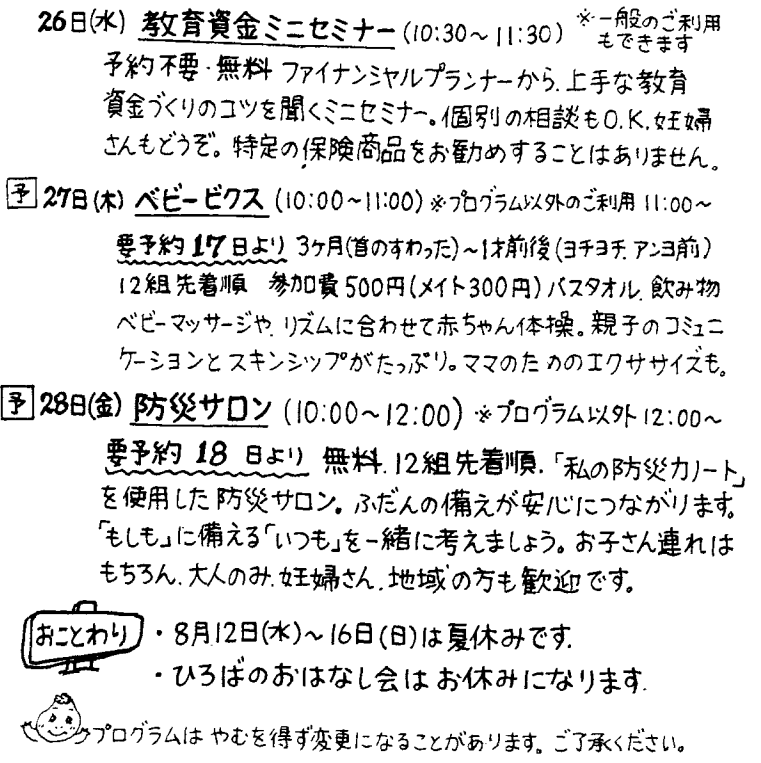 26日(水) 教育資金ミニセミナー (10:30～11:30) ※一般のご利用
もできます
予約不要・無料 ファイナンシャルプランナーから、上手な教育
資金づくりのコツを聞くミニセミナー。個別の相談もO.K.妊婦
さんもどうぞ。特定の保険商品をお勧めすることはありません。
予 27日(木) ベビービクス (10:00～11:00) ※プログラム以外のご利用 11:00～
要予約17日より 3ヶ月(首のすわった)～1才前後(ヨチヨチ、アンヨ前)
12組先着順 参加費500円(メイト300円)バスタオル、飲み物
ベビーマッサージや、リズムに合わせて赤ちゃん体操。親子のコミュニ
ケーションとスキンシップがたっぷり。ママのためのエクササイズも。
予 28日(金) 防災サロン (10:00～12:00) ※プログラム以外12:00～
要予約 18 日より 無料、12組先着順、「私の防災力ノート」
を使用した防災サロン。ふだんの備えが安心につながります。
「もしも」に備える「いつも」を一緒に考えましょう。お子さん連れは
もちろん、大人のみ、妊婦さん、地域の方も歓迎です。
おことわり ・8月12日(水)～16日(日)は夏休みです。
・ひろばのおはなし会はお休みになります。
プログラムは やむを得ず変更になることがあります。ご了承ください。